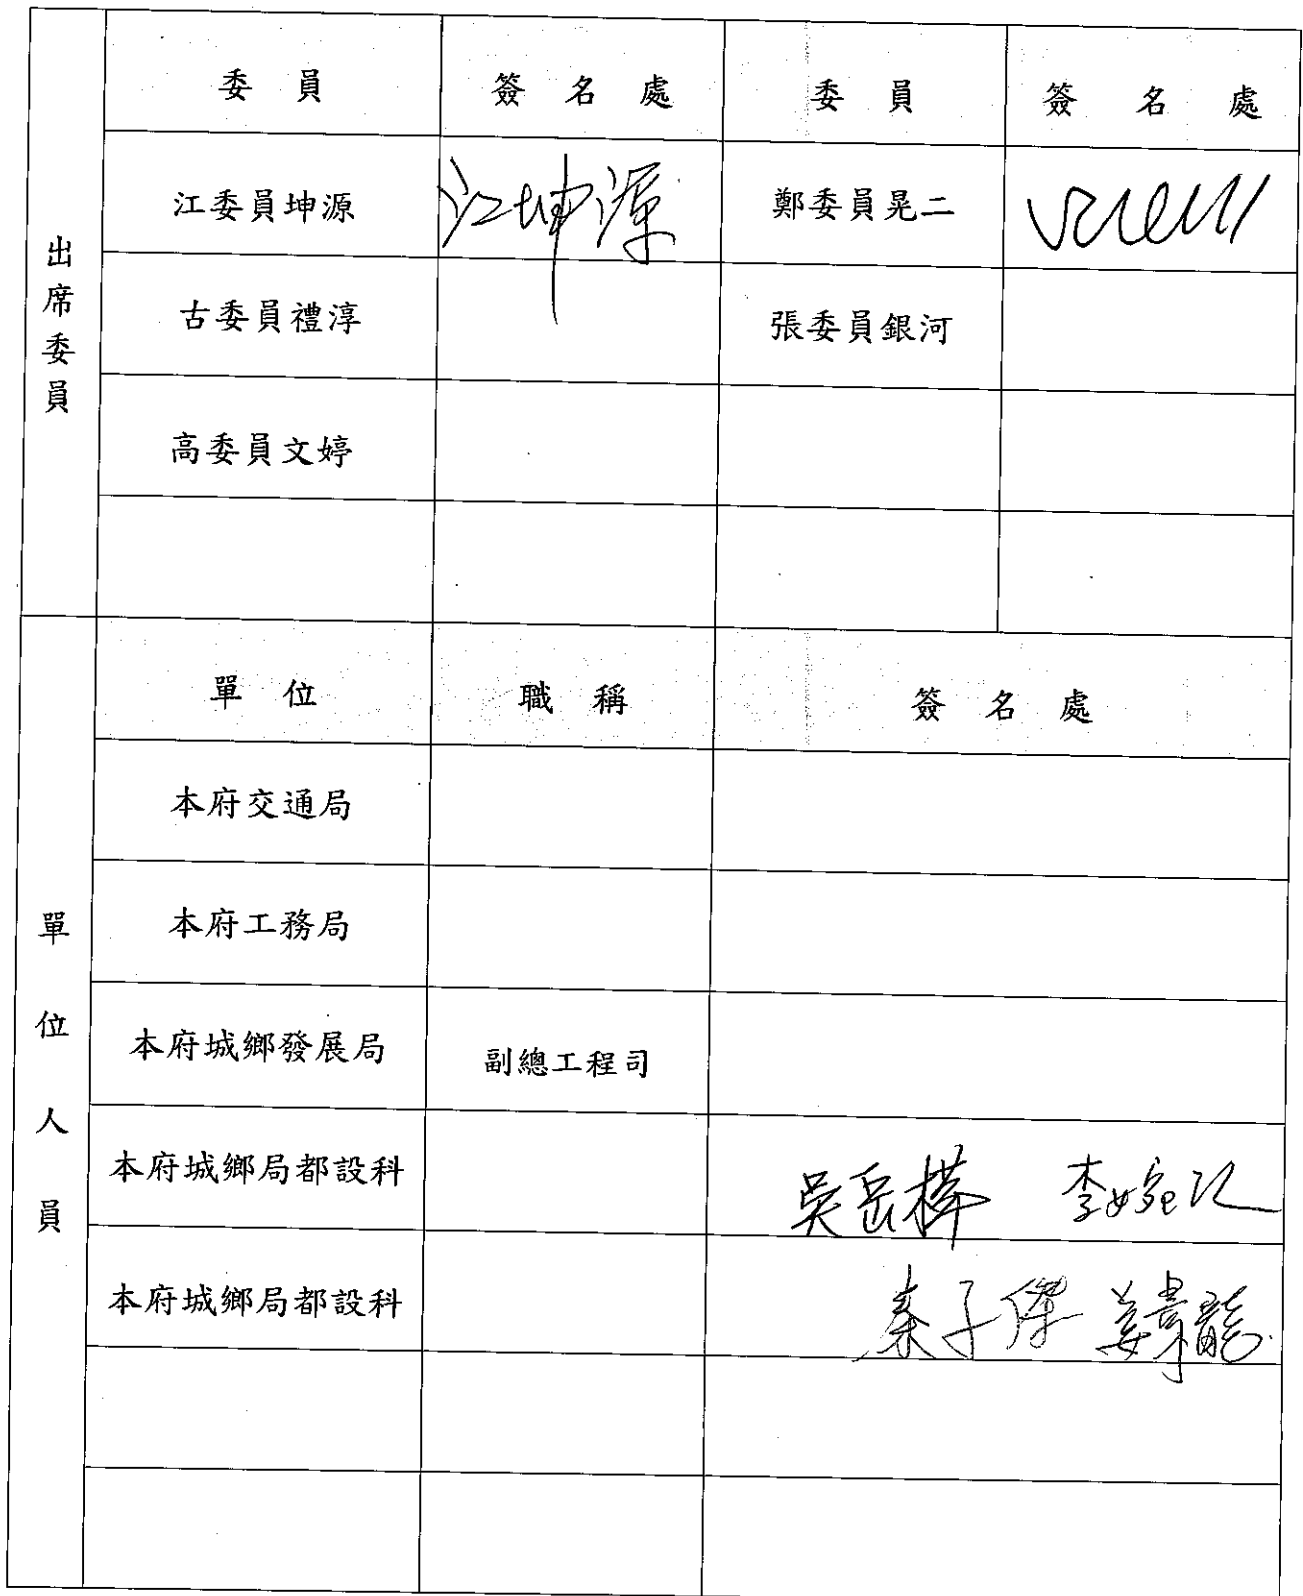 出席委員
委員 簽名處 委員 簽名處
江委員坤源 江坤源 鄭委員晃二
古委員禮淳 張委員銀河
高委員文婷
單位人員
單位 職稱 簽名處
本府交通局
本府工務局
本府城鄉發展局 副總工程司
本府城鄉局都設科 吳岳樺 李婉
本府城鄉局都設科 秦子傑 姜韋龍